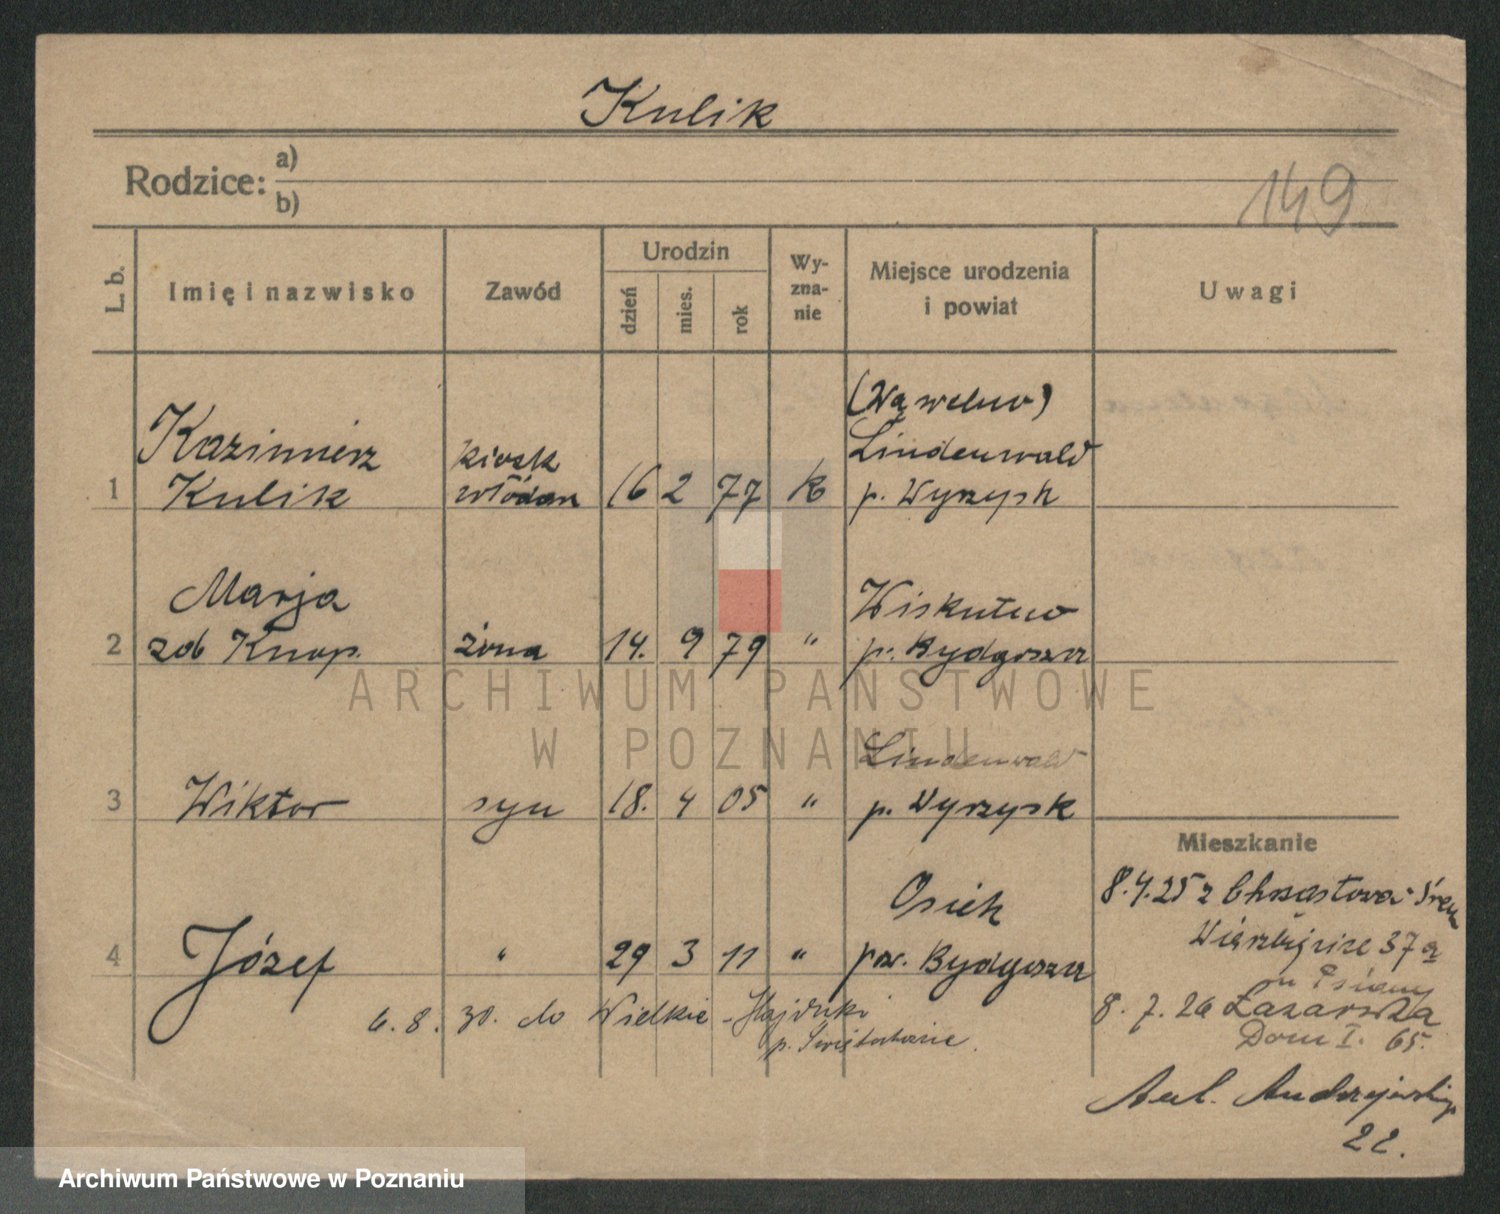 Kulik
Rodzice: a)
b)
149
L. b. Imię i nazwisko Zawód Urodzin dzień mies. rok Wy-zna-nie Miejsce urodzenia i powiat Uwagi
(Wąwelno)
Kazimierz kiosk Lindenwald
1 Kulik włódarz 16 2 77 k p. Wyrzysk
Marja Wiskutno
2 zd Knop. żona 14. 9 79 " p. Bydgoszcz
ARCHIWUM PAŃSTWOWE
W POZNANIU
Lindenwald
3 Wiktor syn 18. 4 05 " p. Wyrzysk
Mieszkanie
Osiek 8.4.25 z Chrząstowa Śrem
37a
4 Józef " 29 3 11 " pow. Bydgoszcz
8. 7. 26 Łazarska
6. 8. 30. do Wielkie-Hajduki
p. Świętochłowice.
Dom I. 65.
Andrzejewskiego
22.
Archiwum Państwowe w Poznaniu